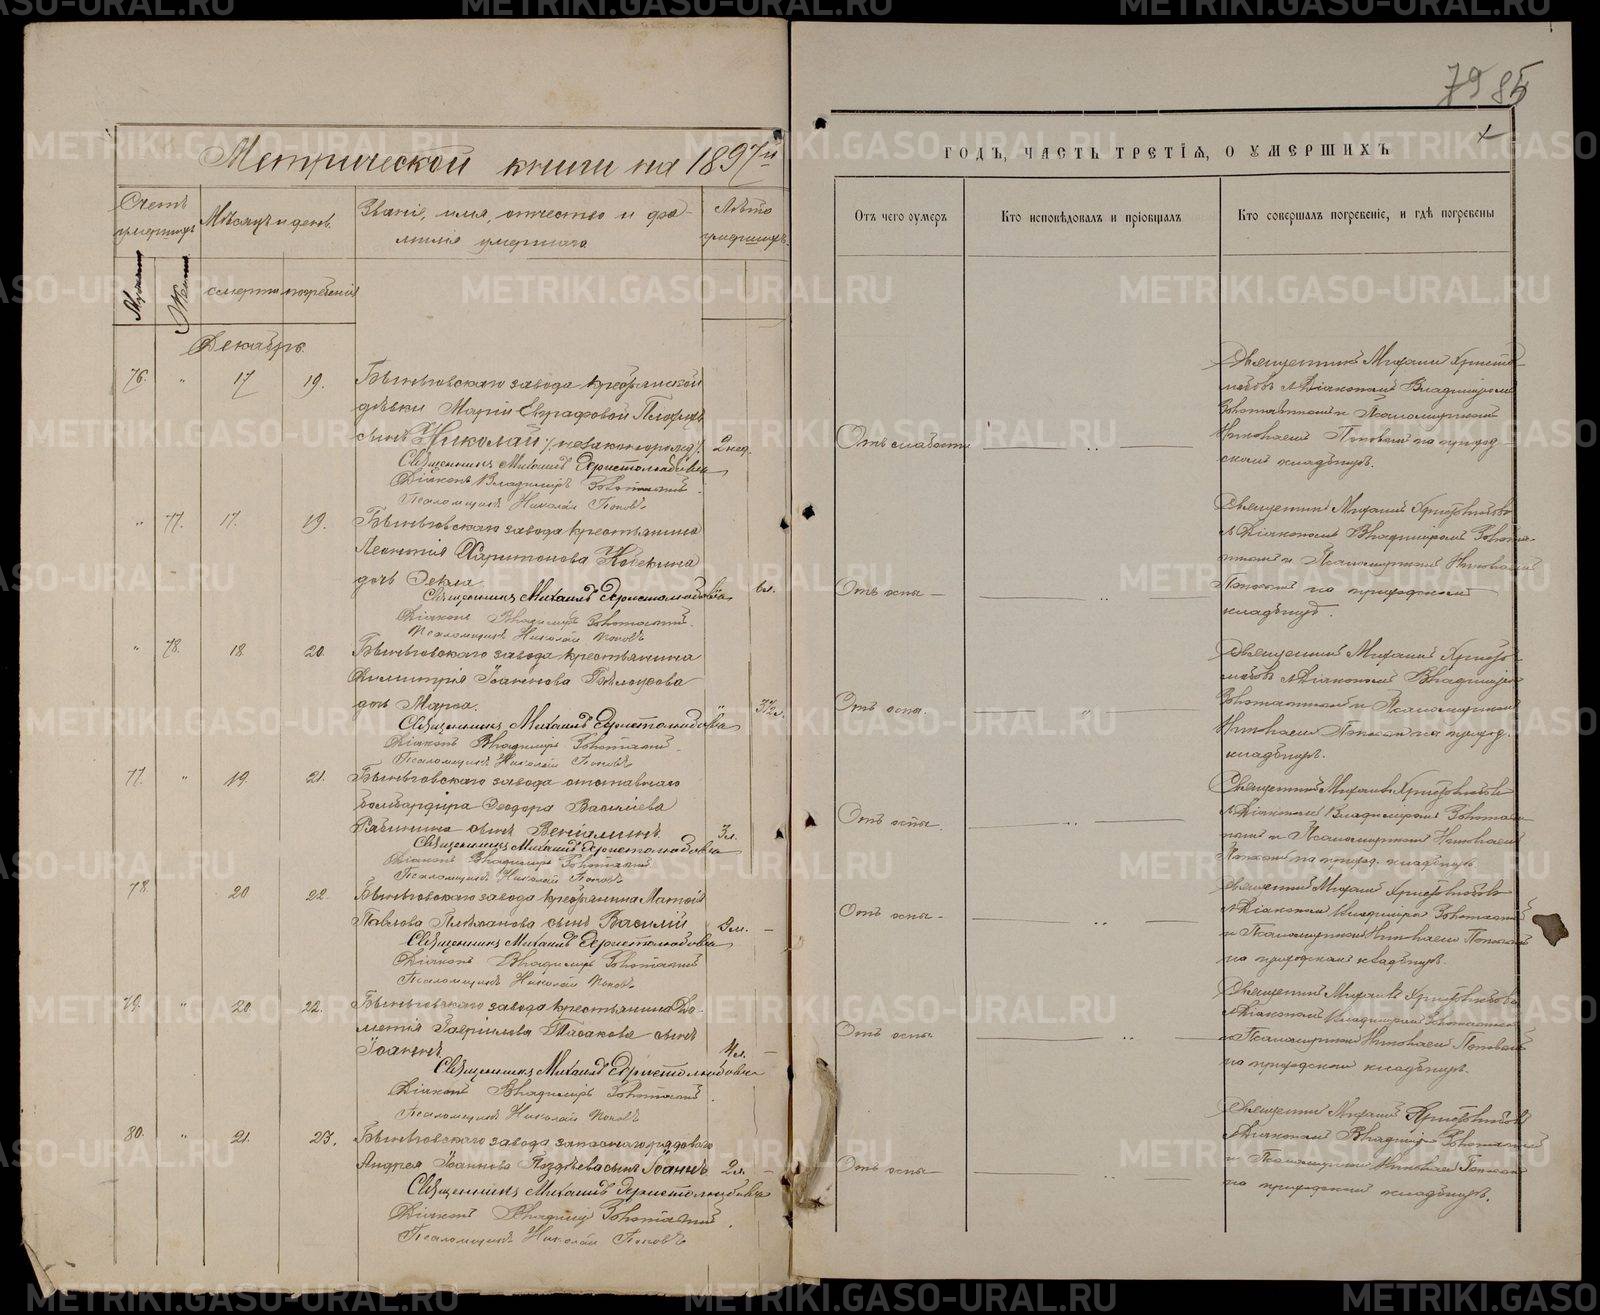 Метрической книги на 1897й
Счетъ умершихъ
Мѣсяцъ и день.
Званіе, имя, отчество и фа-
милія умершаго
Лѣта умершихъ.
смерти
погребенія
Декабрь.
76. " 17 19. Бынговскаго завода
дѣвки Маріи Евграфовой
сынъ Николай (незаконнорожд.) 2 нед.
Священникъ Михаилъ Христолюбовъ
Діаконъ Владиміръ
Псаломщикъ Николай Поповъ
" 77. 17. 19. Бынговскаго завода крестьянина
Леонтія Харитонова
дочь Ѳекла 6 л.
Священникъ Михаилъ Христолюбовъ
Діаконъ Владиміръ
Псаломщикъ Николай Поповъ
" 78. 18. 20. Бынговскаго завода крестьянина
Димитрія Іоаннова Бѣлоусова
дочь Марѳа. 3½ л.
Священникъ Михаилъ Христолюбовъ
Діаконъ Владиміръ
Псаломщикъ Николай Поповъ
77. " 19. 21. Бынговскаго завода отставнаго
бомбардира Ѳеодора Василіева
сынъ Веніаминъ. 3 л.
Священникъ Михаилъ Христолюбовъ
Діаконъ Владиміръ
Псаломщикъ Николай Поповъ
78. 20 22. Бынговскаго завода
Павлова сынъ Василій
Священникъ Михаилъ Христолюбовъ
Діаконъ Владиміръ
Псаломщикъ Николай Поповъ
79. " 20. 22. Бынговскаго завода крестьянина До-
метія Гавріилова сынъ
Іоаннъ. 4 л.
Священникъ Михаилъ Христолюбовъ
Діаконъ Владиміръ
Псаломщикъ Николай Поповъ
80. " 21. 23. Бынговскаго завода запаснаго рядоваго
Андрея Іоаннова сынъ Іоаннъ 2 л.
Священникъ Михаилъ Христолюбовъ
Діаконъ Владиміръ
Псаломщикъ Николай Поповъ
79 85
ГОДЪ, ЧАСТЬ ТРЕТІЯ, О УМЕРШИХЪ
Отъ чего умеръ
Кто исповѣдовалъ и пріобщалъ
Кто совершалъ погребеніе, и гдѣ погребены
Отъ слабости
Священникъ Михаилъ Христо-
любовъ съ Діакономъ Владиміромъ
и Псаломщикомъ
Николаемъ Поповымъ на приход-
скомъ кладбищѣ.
Отъ оспы
Священникъ Михаилъ Христолюбовъ
съ Діакономъ Владиміромъ
и Псаломщикомъ Николаемъ
Поповымъ на приходскомъ
кладбищѣ.
Отъ оспы.
Священникъ Михаилъ Христо-
любовъ съ Діакономъ Владиміромъ
и Псаломщикомъ
Николаемъ Поповымъ на приход.
кладбищѣ.
Отъ оспы.
Священникъ Михаилъ Христолюбовъ
съ Діакономъ Владиміромъ
и Псаломщикомъ Николаемъ
Поповымъ на приход. кладбищѣ.
Отъ оспы
Священникъ Михаилъ Христолюбовъ
съ Діакономъ Владиміромъ
и Псаломщикомъ Николаемъ Поповымъ
на приходскомъ кладбищѣ.
Отъ оспы.
Священникъ Михаилъ Христолюбовъ
съ Діакономъ Владиміромъ
и Псаломщикомъ Николаемъ Поповымъ
на приходскомъ кладбищѣ.
Отъ оспы
Священникъ Михаилъ Христолюбовъ
съ Діакономъ Владиміромъ
и Псаломщикомъ Николаемъ Поповымъ
на приходскомъ кладбищѣ.
METRIKI.GASO-URAL.RU